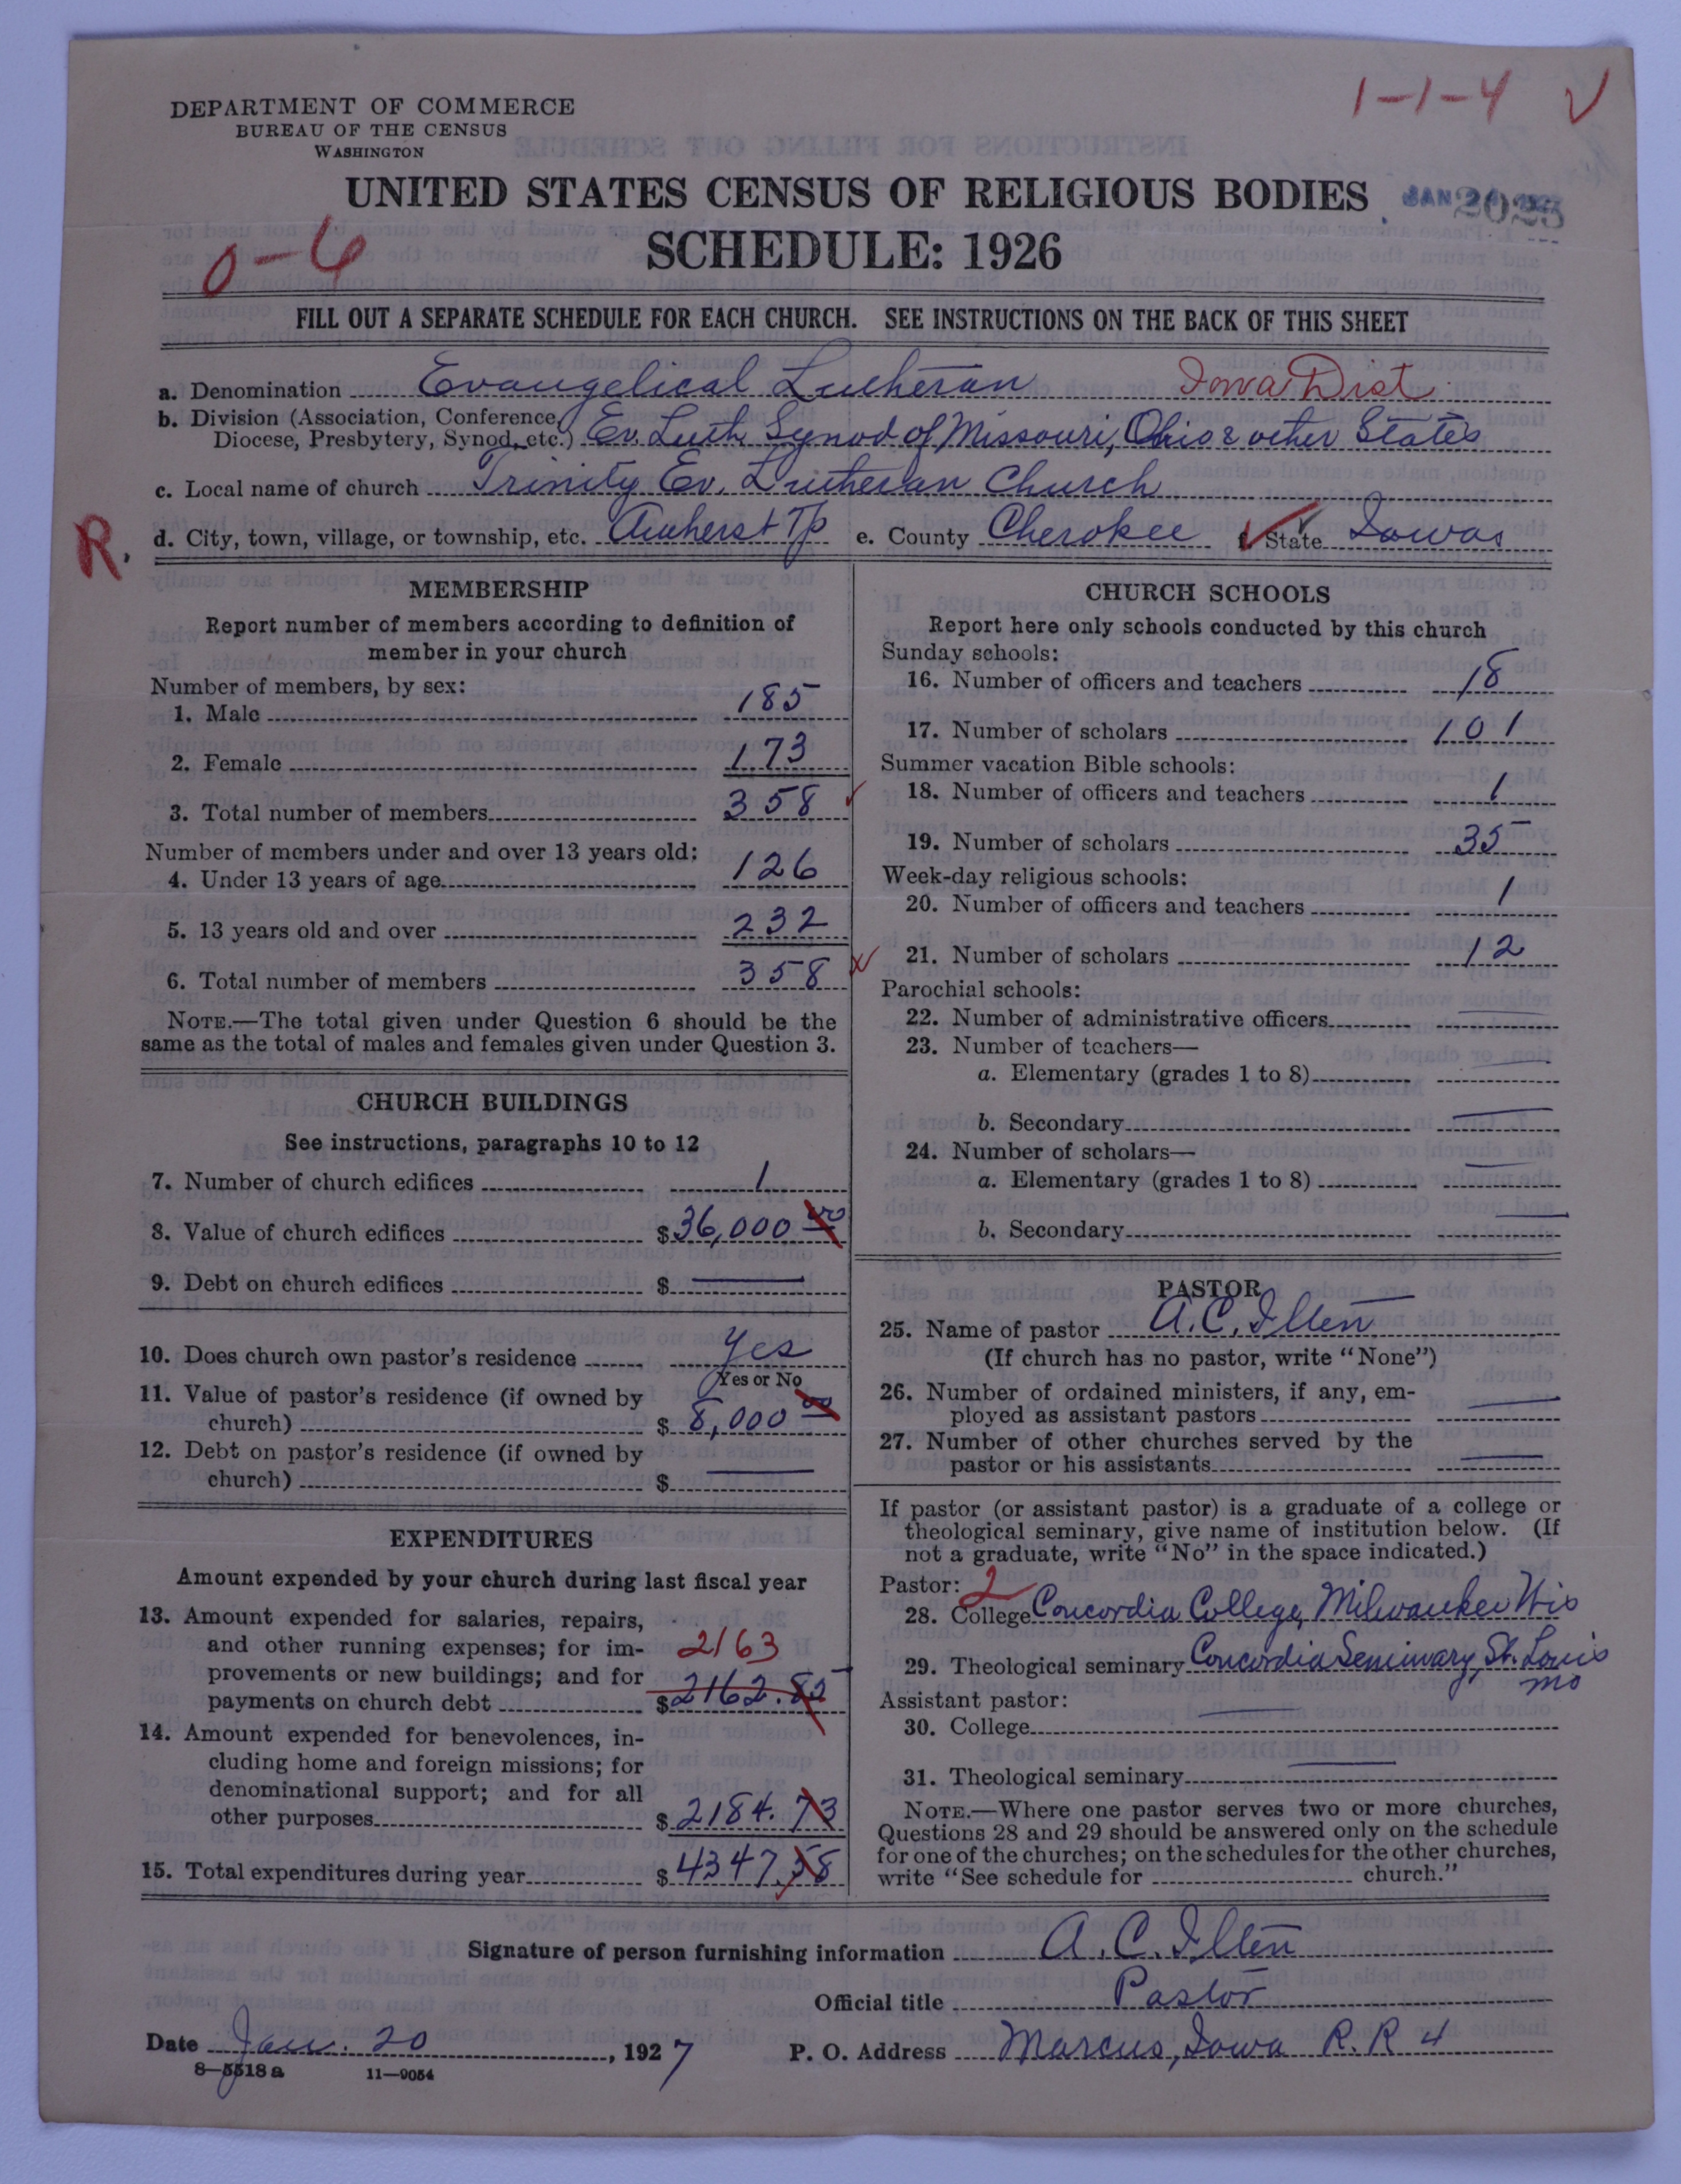 1-1-4 √
DEPARTMENT OF COMMERCE
BUREAU OF THE CENSUS
WASHINGTON
UNITED STATES CENSUS OF RELIGIOUS BODIES
SCHEDULE: 1926
0-6
FILL OUT A SEPARATE SCHEDULE FOR EACH CHURCH. SEE INSTRUCTIONS ON THE BACK OF THIS SHEET
a. Denomination Evangelical Lutheran Iowa Dist
b. Division (Association, Conference,
Diocese, Presbytery, Synod, etc.) Ev. Luth Synod of Missouri, Ohio & other States
c. Local name of church Trinity Ev. Lutheran Church
R. d. City, town, village, or township, etc. Amherst Tp e. County Cherokee State Iowa
MEMBERSHIP
Report number of members according to definition of
member in your church
Number of members, by sex:
1. Male 185
2. Female 173
3. Total number of members 358
Number of members under and over 13 years old:
4. Under 13 years of age 126
5. 13 years old and over 232
6. Total number of members 358
NOTE.—The total given under Question 6 should be the
same as the total of males and females given under Question 3.
CHURCH BUILDINGS
See instructions, paragraphs 10 to 12
7. Number of church edifices 1
8. Value of church edifices $ 36,000 00
9. Debt on church edifices $ —
10. Does church own pastor's residence Yes
Yes or No
11. Value of pastor's residence (if owned by
church) $ 8,000 00
12. Debt on pastor's residence (if owned by
church) $ —
EXPENDITURES
Amount expended by your church during last fiscal year
13. Amount expended for salaries, repairs,
and other running expenses; for im-
provements or new buildings; and for
payments on church debt 2163
$ 2162.85
14. Amount expended for benevolences, in-
cluding home and foreign missions; for
denominational support; and for all
other purposes $ 2184.73
15. Total expenditures during year $ 4347.58
CHURCH SCHOOLS
Report here only schools conducted by this church
Sunday schools:
16. Number of officers and teachers 18
17. Number of scholars 101
Summer vacation Bible schools:
18. Number of officers and teachers 1
19. Number of scholars 35
Week-day religious schools:
20. Number of officers and teachers 1
21. Number of scholars 12
Parochial schools:
22. Number of administrative officers —
23. Number of teachers—
a. Elementary (grades 1 to 8) —
b. Secondary —
24. Number of scholars—
a. Elementary (grades 1 to 8) —
b. Secondary —
PASTOR
25. Name of pastor A. C. Ilten
(If church has no pastor, write "None")
26. Number of ordained ministers, if any, em-
ployed as assistant pastors —
27. Number of other churches served by the
pastor or his assistants —
If pastor (or assistant pastor) is a graduate of a college or
theological seminary, give name of institution below. (If
not a graduate, write "No" in the space indicated.)
Pastor: 2
28. College Concordia College, Milwaukee Wis
29. Theological seminary Concordia Seminary, St. Louis
Mo
Assistant pastor:
30. College —
31. Theological seminary —
NOTE.—Where one pastor serves two or more churches,
Questions 28 and 29 should be answered only on the schedule
for one of the churches; on the schedules for the other churches,
write "See schedule for church."
Signature of person furnishing information A. C. Ilten
Official title Pastor
Date Jan. 20, 1927 P. O. Address Marcus, Iowa R.R 4
8—5518 a 11—9054